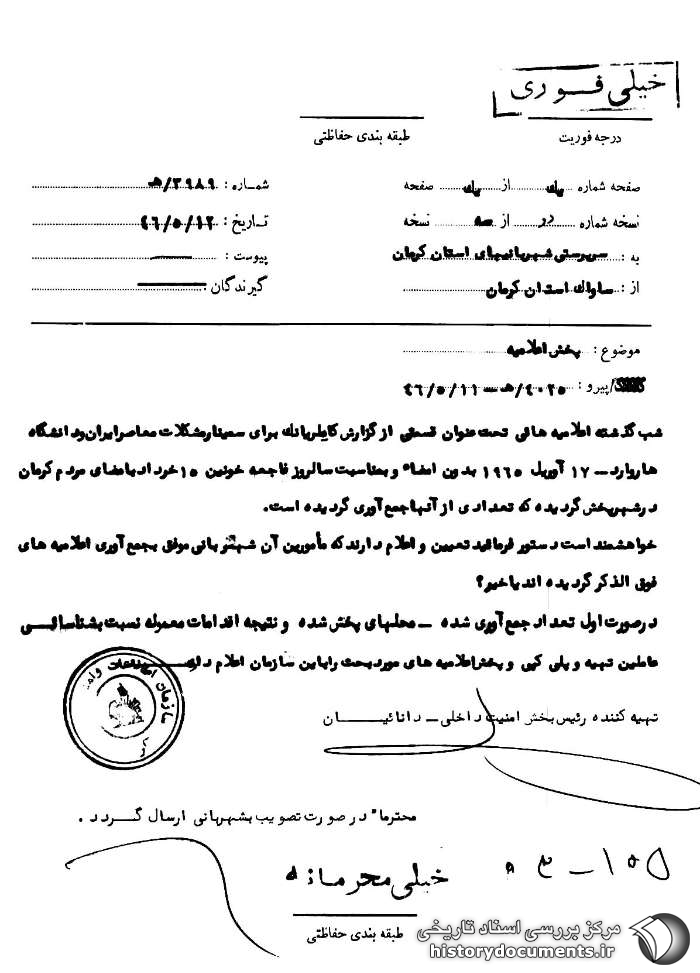 خیلی فوری
درجه فوریت
طبقه بندی حفاظتی
صفحه شماره یک از یک صفحه
شماره : ۳۹۸۹/هـ
نسخه شماره از سه نسخه
تاریخ : ۴۶/۵/۱۲
به : سرپرستی شهربانیهای استان کرمان
پیوست :
از : ساواک استان کرمان
گیرندگان :
موضوع : پخش اعلامیه
/پیرو : ۴۰۲۵/هـ – ۴۶/۵/۱۱
شب گذشته اعلامیه هائی تحت عنوان قسمتی از گزارش کایلریانک برای سمینار مشکلات معاصر ایران در دانشگاه
هاروارد – ۱۷ آوریل ۱۹۶۵ بدون امضاء و بمناسبت سالروز فاجعه خونین ۱۵ خرداد بامضای مردم کرمان
در شهر پخش گردیده که تعدادی از آنها جمع آوری گردیده است.
خواهشمند است دستور فرمائید تعیین و اعلام دارند که مأمورین آن شهربانی موفق بجمع آوری اعلامیه های
فوق الذکر گردیده اند یا خیر؟
در صورت اول تعداد جمع آوری شده – محلهای پخش شده و نتیجه اقدامات معموله نسبت بشناسائی
عاملین تهیه و پلی کپی و پخش اعلامیه های مورد بحث را باین سازمان اعلام دارند
تهیه کننده رئیس بخش امنیت داخلی – دانائیان
سازمان اطلاعات و امنیت
محترما" در صورت تصویب بشهربانی ارسال گردد .
خیلی محرمانه
طبقه بندی حفاظتی
مرکز بررسی اسناد تاریخی
historydocuments.ir